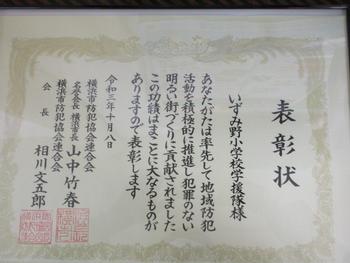 表彰状
いずみ野小学校学援隊様
あなたがたは率先して地域防犯
活動を積極的に推進し犯罪のない
明るい街づくりに貢献されました
この功績はまことに大なるものが
ありますので表彰します
令和三年十月八日
横浜市防犯協会連合会
名誉会長 横浜市長 山中竹春
横浜市防犯協会連合会
会長 相川文五郎